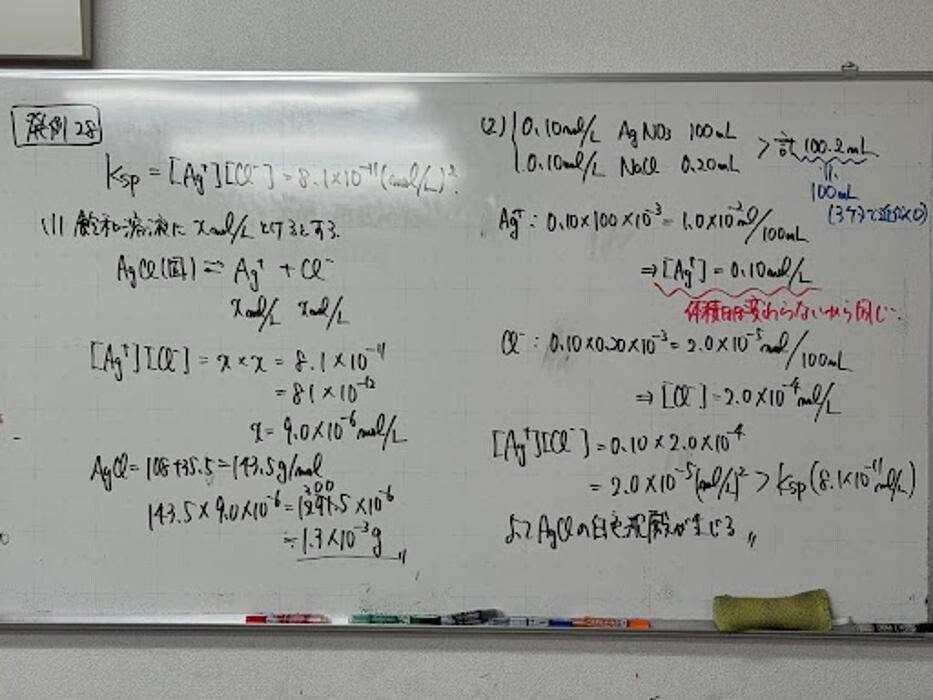 発例28
Ksp = [Ag⁺][Cl⁻] = 8.1×10⁻¹¹(mol/L)².
(1) 飽和溶液に x mol/L とけるとする.
AgCl(固) ⇌ Ag⁺ + Cl⁻
x mol/L x mol/L
[Ag⁺][Cl⁻] = x × x = 8.1×10⁻¹¹
= 81×10⁻¹²
x = 9.0×10⁻⁶ mol/L
AgCl = 108+35.5 = 143.5g/mol
143.5×9.0×10⁻⁶ = 1291.5×10⁻⁶
300
≒ 1.3×10⁻³g 〃
(2) 0.10mol/L AgNO₃ 100mL
0.10mol/L NaCl 0.20mL
> 計 100.2mL
100mL
Ag⁺: 0.10×100×10⁻³ = 1.0×10⁻² mol/100mL
⇒ [Ag⁺] = 0.10mol/L
体積は変わらないから同じ.
Cl⁻: 0.10×0.20×10⁻³ = 2.0×10⁻⁵ mol/100mL
⇒ [Cl⁻] = 2.0×10⁻⁴ mol/L
[Ag⁺][Cl⁻] = 0.10 × 2.0×10⁻⁴
= 2.0×10⁻⁵(mol/L)² > Ksp(8.1×10⁻¹¹ mol/L)
よってAgClの白色沈殿が生じる 〃